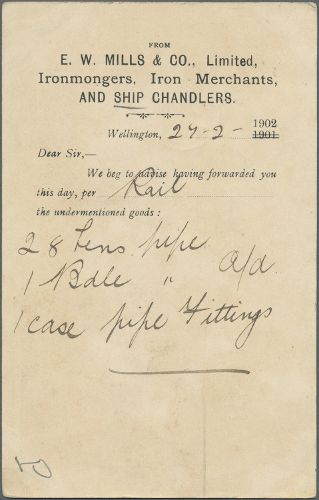 FROM
E. W. MILLS & CO., Limited,
Ironmongers, Iron Merchants,
AND SHIP CHANDLERS.
1902
Wellington, 27-2- 1901
Dear Sir,—
We beg to advise having forwarded you
this day, per Rail
the undermentioned goods :
28 Lens pipe
1 Bdle " a/d
1 case pipe Fittings